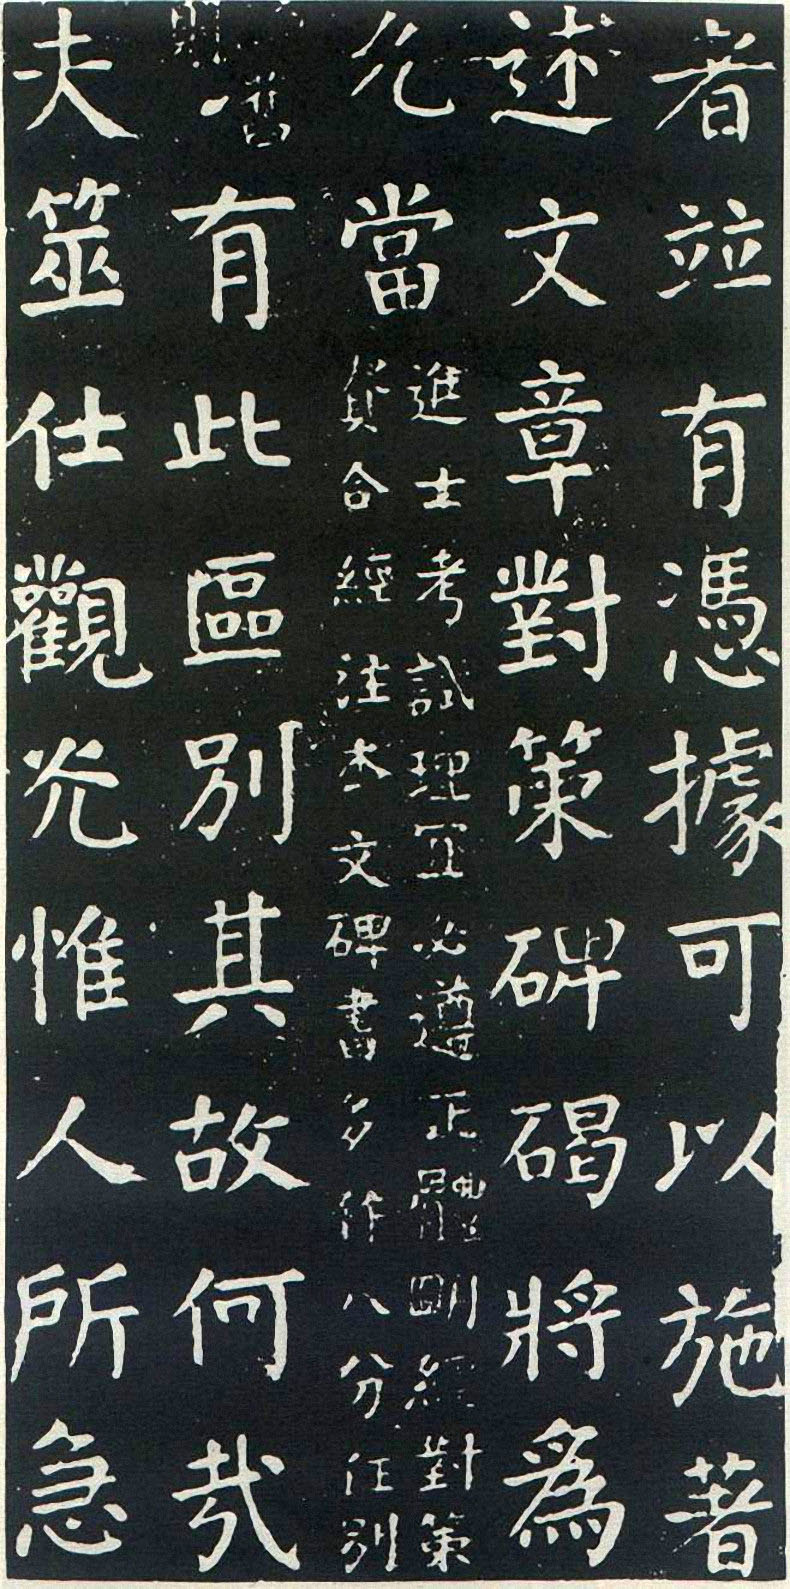 者並有憑據可以施著
述文章對策碑碣將為
允當
進士考試理宜必遵正體明經對策
貴合經注本文碑書多作八分任別
舊
則
有此區別其故何哉
夫筮仕觀光惟人所急